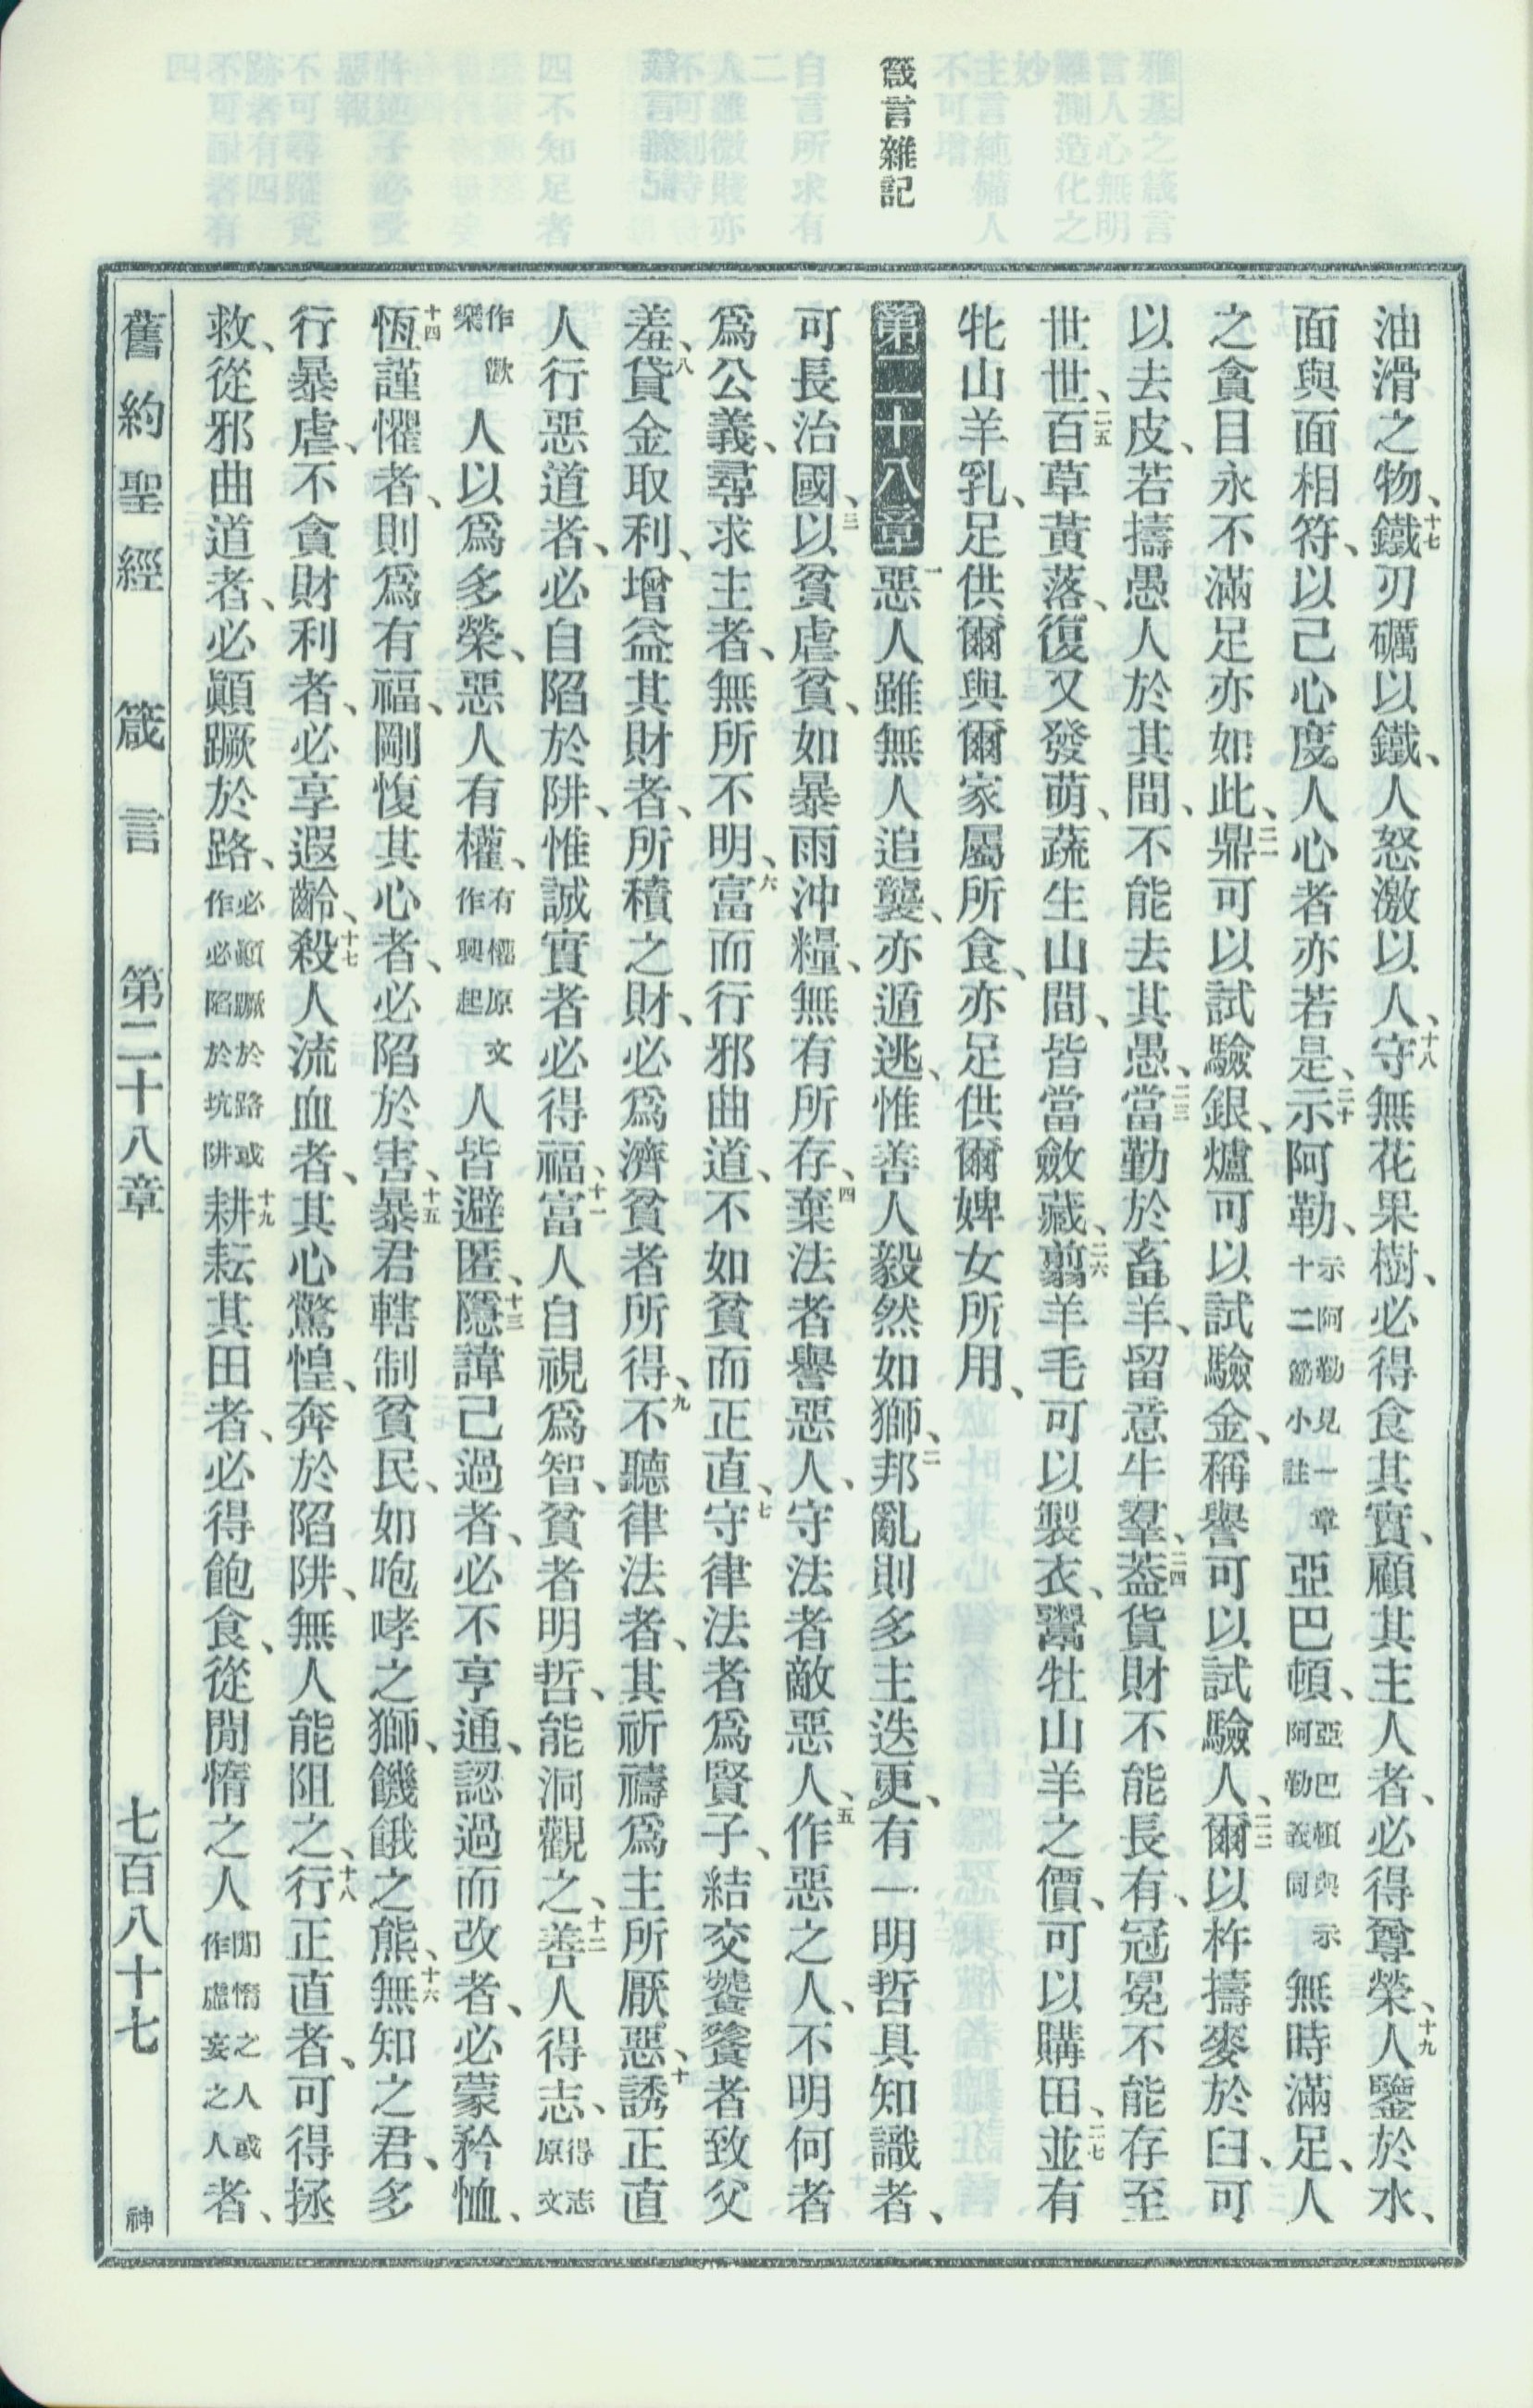 箴言雜記
油滑之物、十七鐵刃礪以鐵、人怒激以人、十八守無花果樹、必得食其實、顧其主人者、必得尊榮、十九人鑒於水、
面與面相符、以己心度人心者亦若是、二十示阿勒、示阿勒見一章十二節小註亞巴頓、亞巴頓與示阿勒義同無時滿足、人
之貪目永不滿足亦如此、二一鼎可以試驗銀、爐可以試驗金、稱譽可以試驗人、二二爾以杵擣麥於臼、可
以去皮、若擣愚人於其間、不能去其愚、二三當勤於畜羊、留意牛羣、二四蓋貨財不能長有、冠冕不能存至
世世、二五百草黃落、復又發萌、蔬生山間、皆當斂藏、二六翦羊毛可以製衣、鬻牡山羊之價、可以購田、二七並有
牝山羊乳、足供爾與爾家屬所食、亦足供爾婢女所用、
第二十八章一惡人雖無人追襲、亦遁逃、惟善人毅然如獅、二邦亂則多主迭更、有一明哲具知識者、
可長治國、三以貧虐貧、如暴雨沖糧、無有所存、四棄法者譽惡人、守法者敵惡人、五作惡之人、不明何者
爲公義、尋求主者、無所不明、六富而行邪曲道、不如貧而正直、七守律法者爲賢子、結交饕餮者致父
羞、八貸金取利、增益其財者、所積之財、必爲濟貧者所得、九不聽律法者、其祈禱爲主所厭惡、十誘正直
人行惡道者、必自陷於阱、惟誠實者必得福、十一富人自視爲智、貧者明哲、能洞觀之、十二善人得志、得志原文
作歡樂人以爲多榮、惡人有權、有權原文作興起人皆避匿、十三隱諱己過者、必不亨通、認過而改者、必蒙矜恤、
十四恆謹懼者、則爲有福、剛愎其心者、必陷於害、十五暴君轄制貧民、如咆哮之獅、饑餓之熊、十六無知之君、多
行暴虐、不貪財利者、必享遐齡、十七殺人流血者、其心驚惶、奔於陷阱、無人能阻之、十八行正直者、可得拯
救、從邪曲道者、必顚蹶於路、必顚蹶於路或作必陷於坑阱十九耕耘其田者、必得飽食、從閒惰之人閒惰之人或作虛妄之人者、
舊約聖經 箴言 第二十八章 七百八十七 神